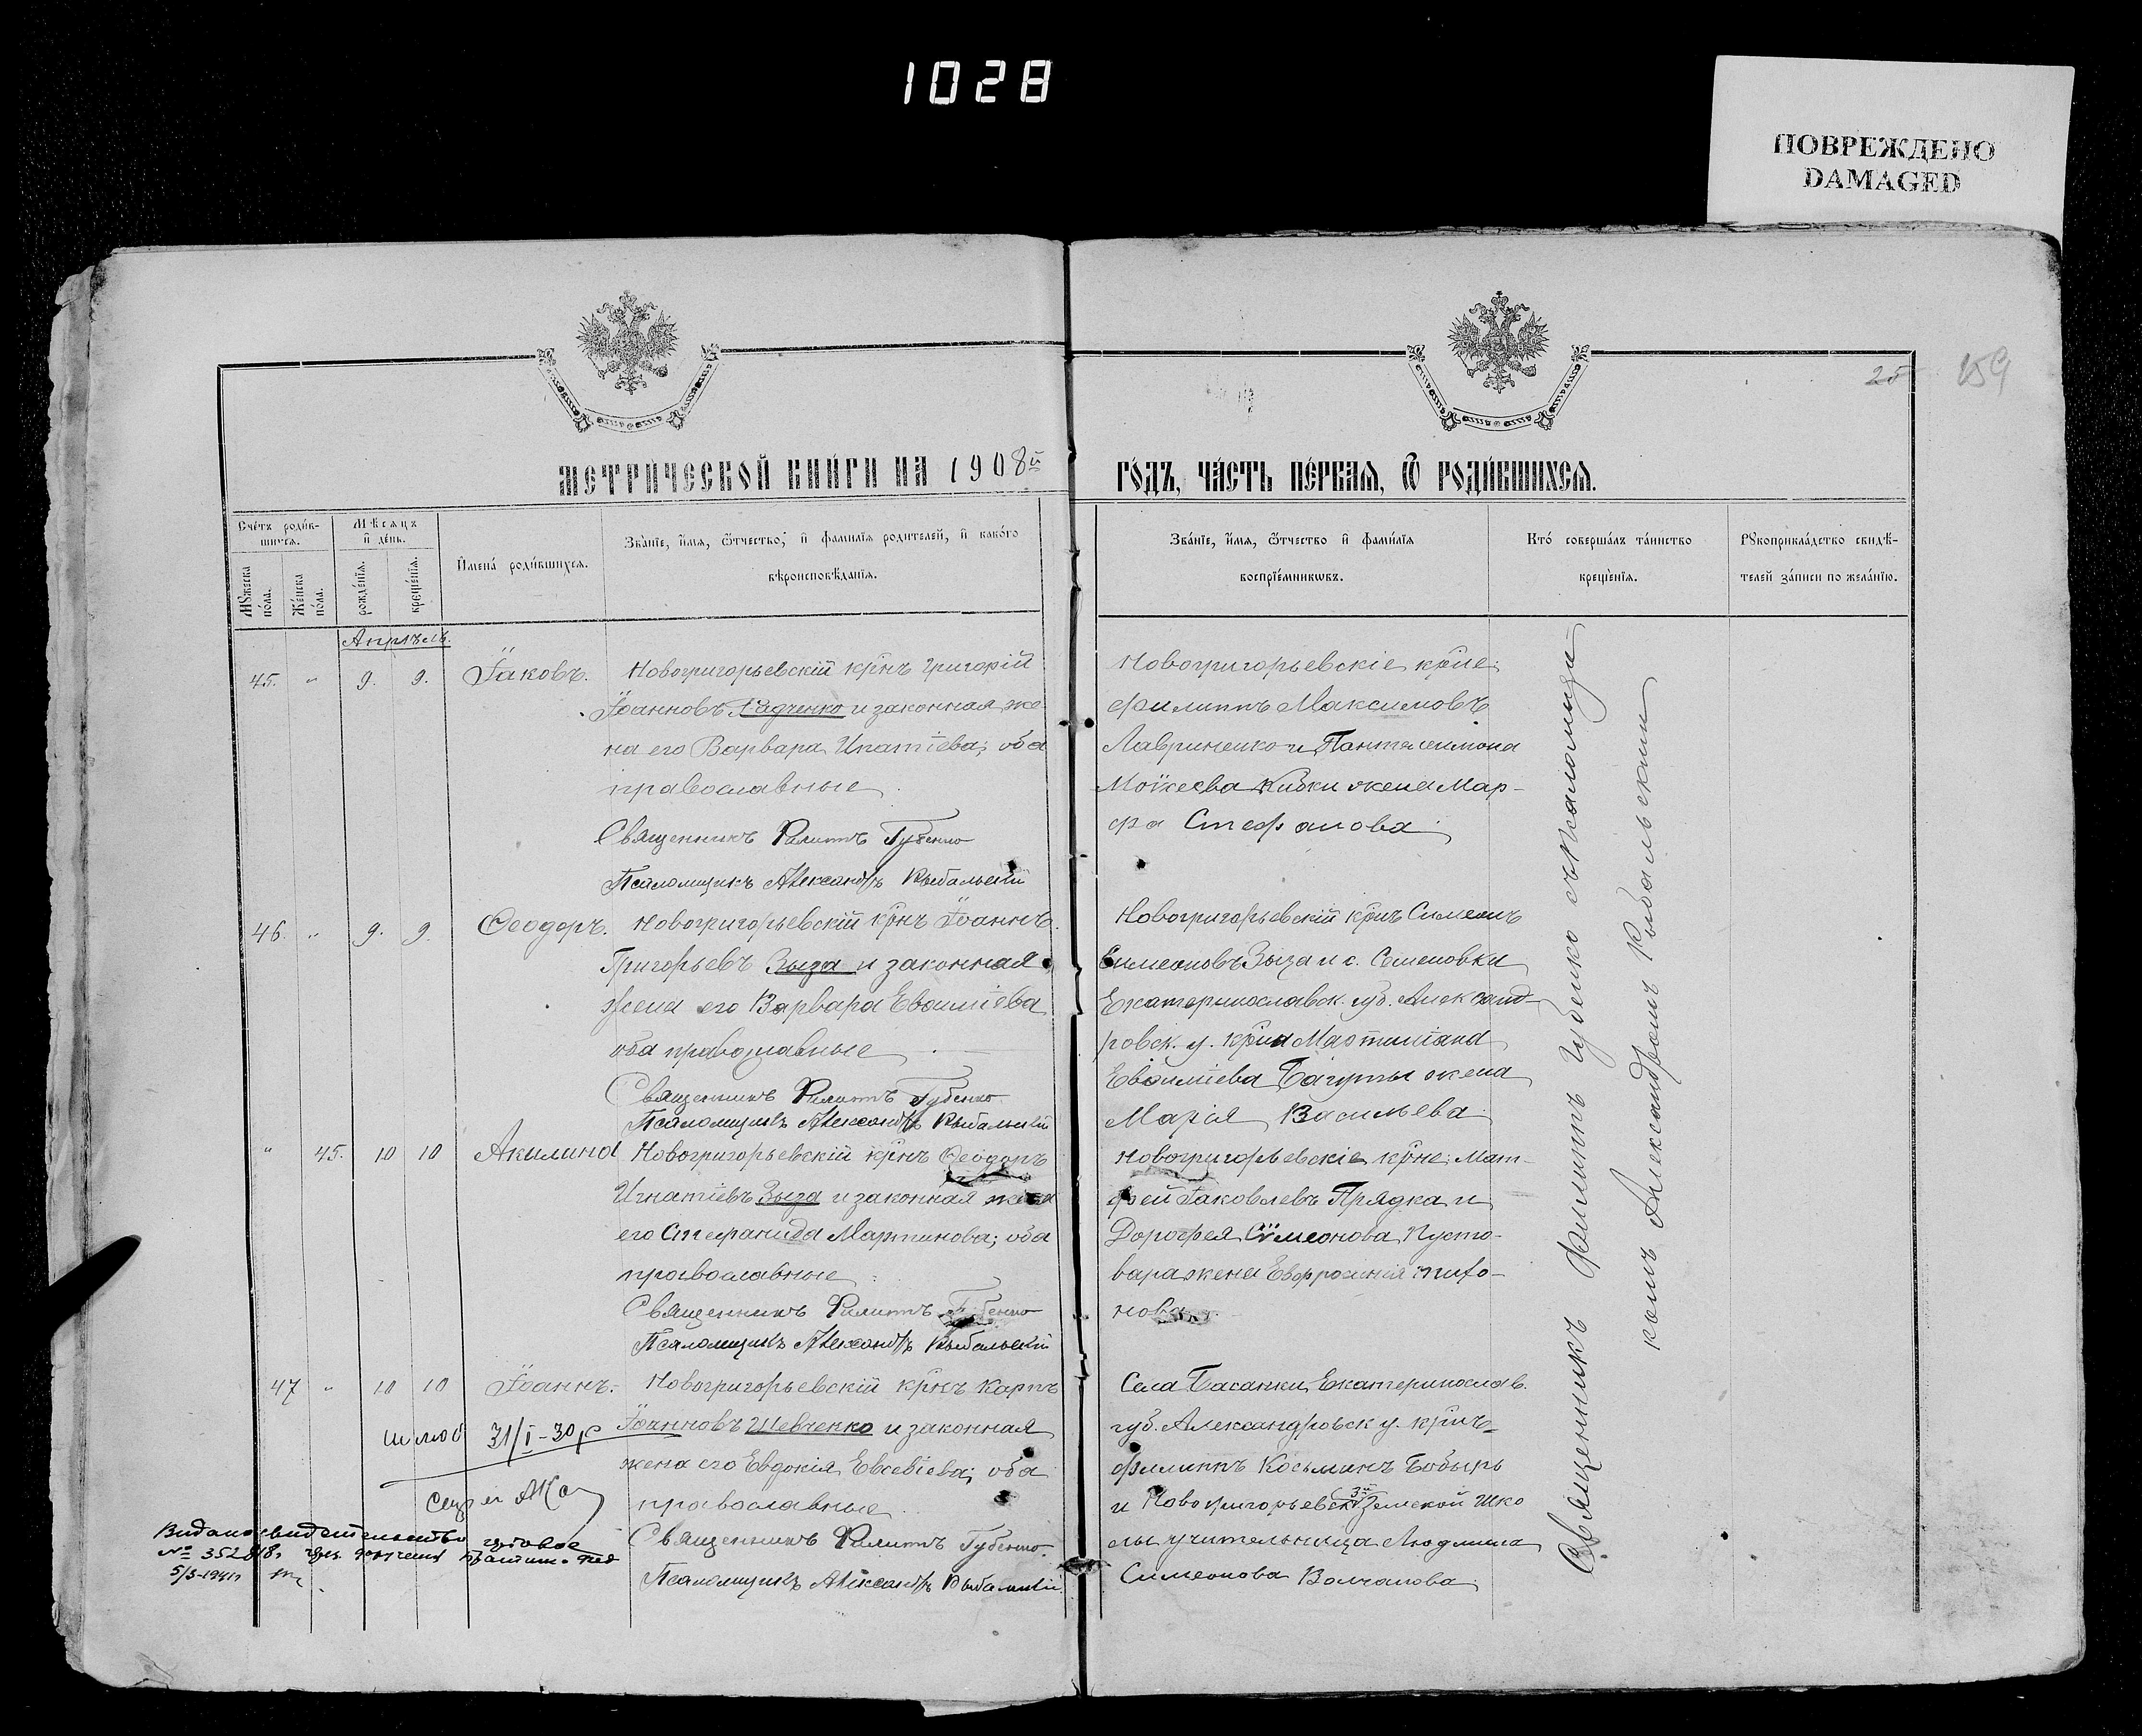 1028
ПОВРЕЖДЕНО
DAMAGED
25
159
МЕТРИЧЕСКОЙ КНИГИ НА 1908й
ГОДЪ, ЧАСТЬ ПЕРВАЯ, Ѿ РОДИВШИХСЯ.
Счетъ родившихся.
Мѣсяцъ и день.
Мужеска пола.
Женска пола.
рожденія.
крещенія.
Имена родившихся.
Званіе, имя, ѿтчество, и фамилія родителей, и какого
вѣроисповѣданія.
Званіе, имя, ѿтчество и фамилія
воспріемникѡвъ.
Кто совершалъ таинство
крещенія.
Рукоприкладство свидѣ-
телей записи по желанію.
Апрѣль.
45. " 9. 9. Іаковъ.
Новогригорьевскій крнъ Григорій
Іоанновъ Радченко и законная же
на его Варвара Ипатіева; оба
православные
Священникъ Филиппъ Губенко
Псаломщикъ Александръ Рыбальскій
Новогригорьевскіе крне:
Филиппъ Максимовъ
Лавриненко и Пантелеимона
Моѵсеева Кибки жена Мар-
фа Стефанова.
46. " 9. 9. Ѳеодоръ.
Новогригорьевскій крнъ Іоаннъ
Григорьевъ Зыза и законная
жена его Варвара Евфиміева
оба православные
Священникъ Филиппъ Губенко
Псаломщикъ Александръ Рыбальскій
Новогригорьевскій крнъ Симеонъ
Симеоновъ Зыза и с. Семеновки
Екатеринославск. губ. Александ-
ровск. у. крна Мартиніана
Евфиміева Багуты жена
Марія Васильева.
" 45. 10 10 Акилина
Новогригорьевскій крнъ Ѳеодоръ
Игнатіевъ Зыза и законная жена
его Стефанида Мартинова; оба
православные
Священникъ Филиппъ Губенко
Псаломщикъ Александръ Рыбальскій
Новогригорьевскіе крне: Мат-
фей Іаковлевъ Прядка и
Дорофея Сѵмеонова Пусто-
вара жена Евфросинія
нова.
47 " 10 10 Іоаннъ.
Новогригорьевскій крнъ Карпъ
Іоанновъ Шевченко и законная
жена его Евдокія Евсевіева; оба
православные
Священникъ Филиппъ Губенко
Псаломщикъ Александръ Рыбальскій
Села Басанки, Екатеринослав.
губ. Александровск у. крнъ
Филиппъ Косьминъ Бобырь
и Новогригорьевск. 3й Земской шко
лы учительница Людмила
Симеонова Волчанова.
31/I-30р
№ 352818
5/3-1941г
Священникъ Филиппъ Губенко съ псаломщи-
комъ Александромъ Рыбальскимъ